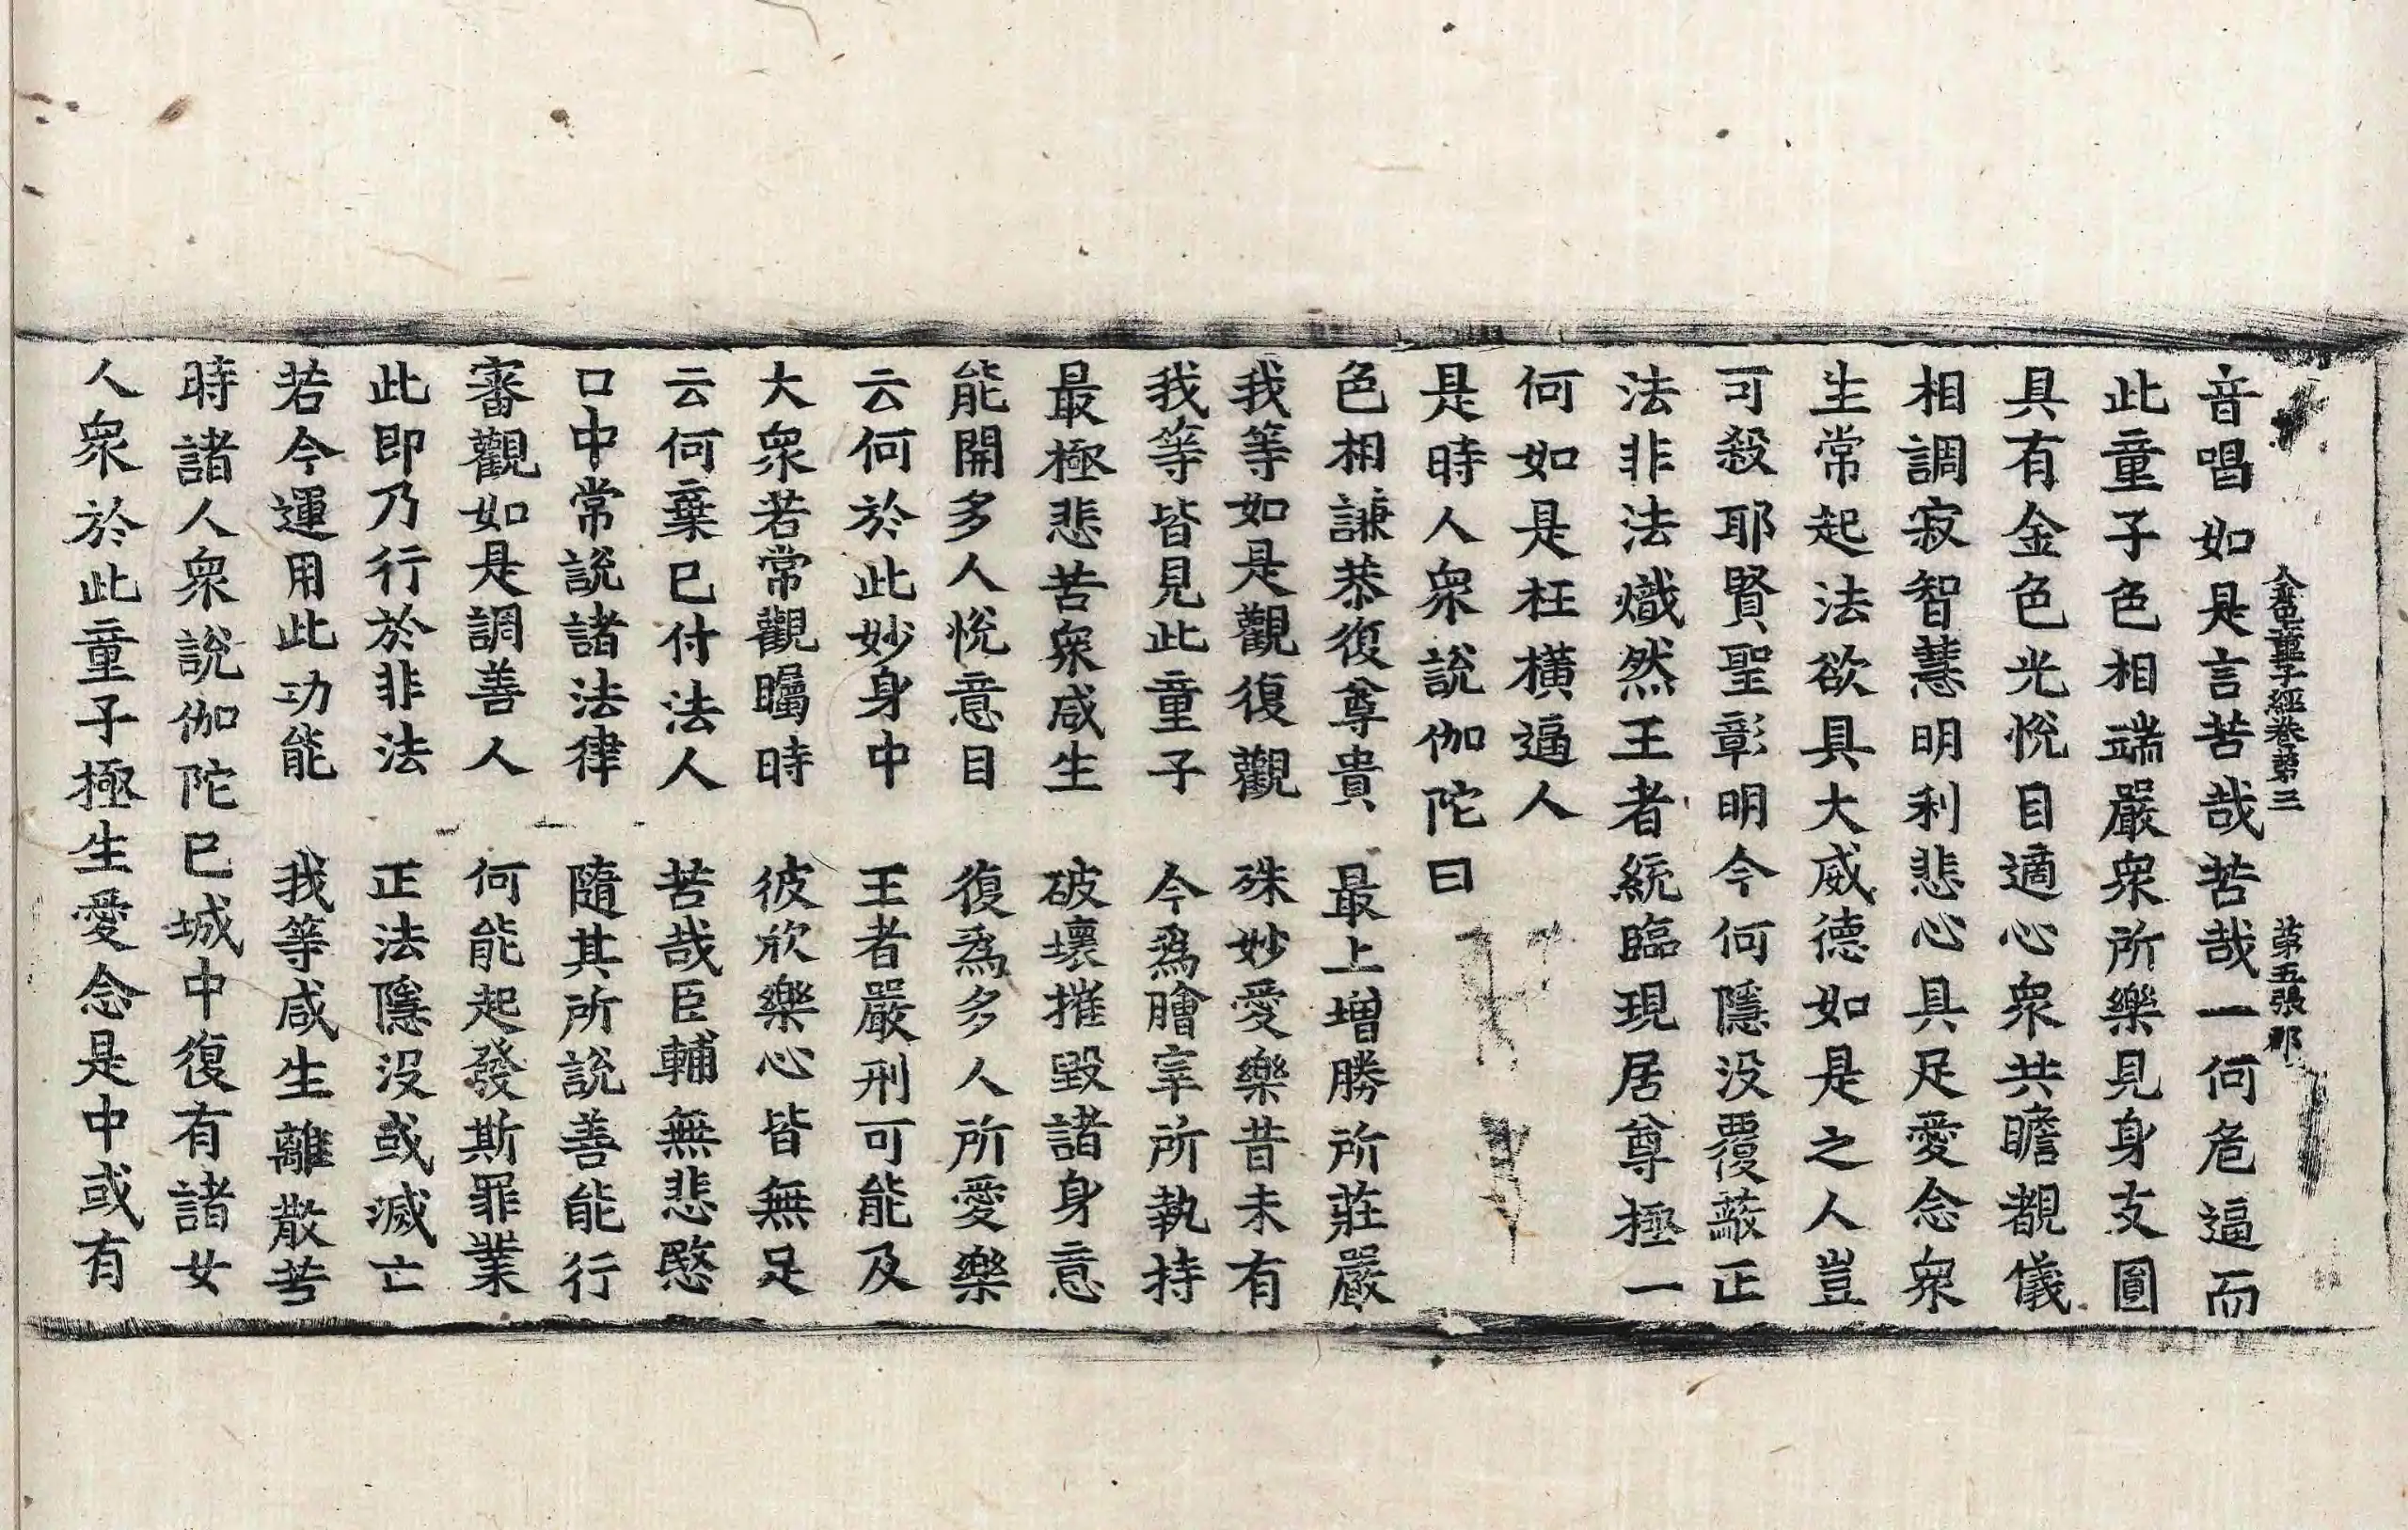 金色童子經卷第三 第五張 那
音唱如是言苦哉苦哉一何危逼而
此童子色相端嚴衆所樂見身支圓
具有金色光悅目適心衆共瞻覩儀
相調寂智慧明利悲心具足愛念衆
生常起法欲具大威德如是之人豈
可殺耶賢聖彰明今何隱没覆蔽正
法非法熾然王者統臨現居尊極一
何如是枉橫逼人
是時人衆說伽陀曰
色相謙恭復尊貴 最上增勝所莊嚴
我等如是觀復觀 殊妙愛樂昔未有
我等皆見此童子 今爲膾宰所執持
最極悲苦衆咸生 破壞摧毀諸身意
能開多人悅意目 復爲多人所愛樂
云何於此妙身中 王者嚴刑可能及
大衆若常觀矚時 彼欣樂心皆無足
云何棄已付法人 苦哉臣輔無悲愍
口中常說諸法律 隨其所說善能行
審觀如是調善人 何能起發斯罪業
此即乃行於非法 正法隱没或滅亡
若今運用此功能 我等咸生離散苦
時諸人衆說伽陀已城中復有諸女
人衆於此童子極生愛念是中或有